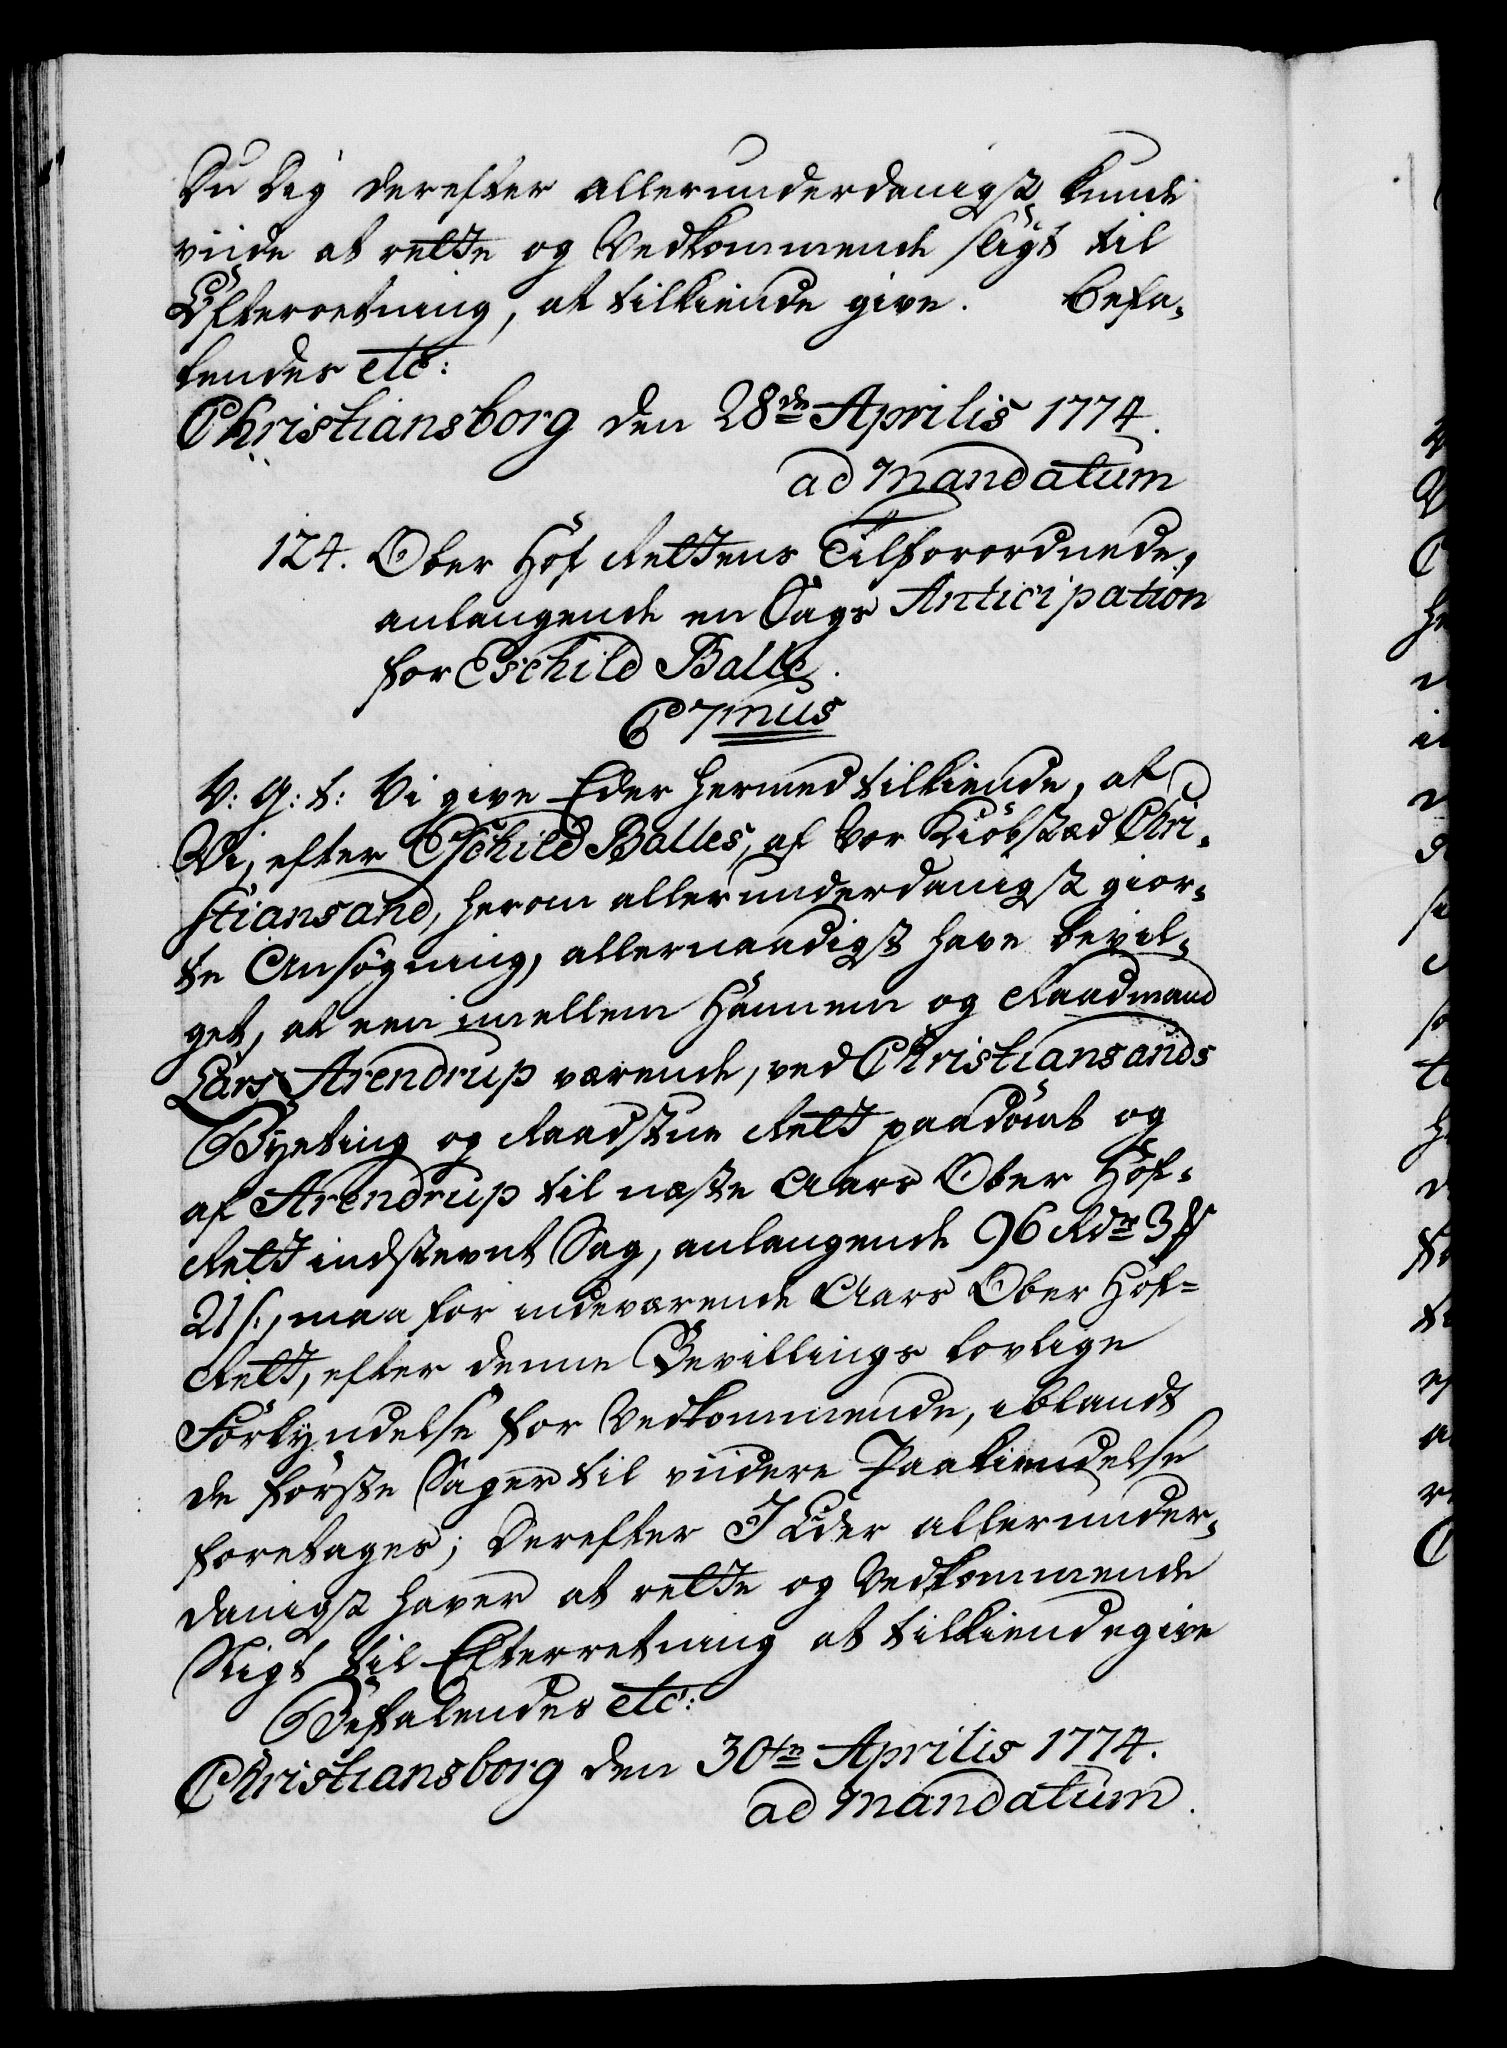 Du Dig derefter allerunderdanigst kunde
viide at rette og Vedkommende sligt til
Efterretning, at tilkiende give. Befa-
lendes etc:
Christiansborg den 28de Aprilis 1774.
ad Mandatum
124. Ober Hof Rettens Tilforordnede,
anlangende en Sags Anticipation
for Eschild Balle.
C 7mus
V: G: t: Vi give Eder hermed tilkiende, at
Vi, efter Eschild Balles, af Vor Kiöbstæd Chri-
stiansand, herom allerunderdanigst gior-
te Ansøgning, allernaadigst have bevil-
get, at een imellem Hannem og Raadmand
Lars Arendrup værende, ved Christiansands
Byeting og Raadstue Rett paadömt og
af Arendrup til næste Aars Ober Hof-
Rett indstevnt Sag, anlangende 96 Rdr 3 ₰
21 s., maa for indeværende Aars Ober Hof-
Rett, efter denne Bevillings lovlige
Forkyndelse for Vedkommende, iblandt
de förste Sager til viidere Paakiendelse
foretages; Derefter I Eder allerunder-
danigst haver at rette og Vedkommende
Sligt til Efterretning at tilkiendegive
Befalendes etc:
Christiansborg den 30te Aprilis 1774.
ad Mandatum.